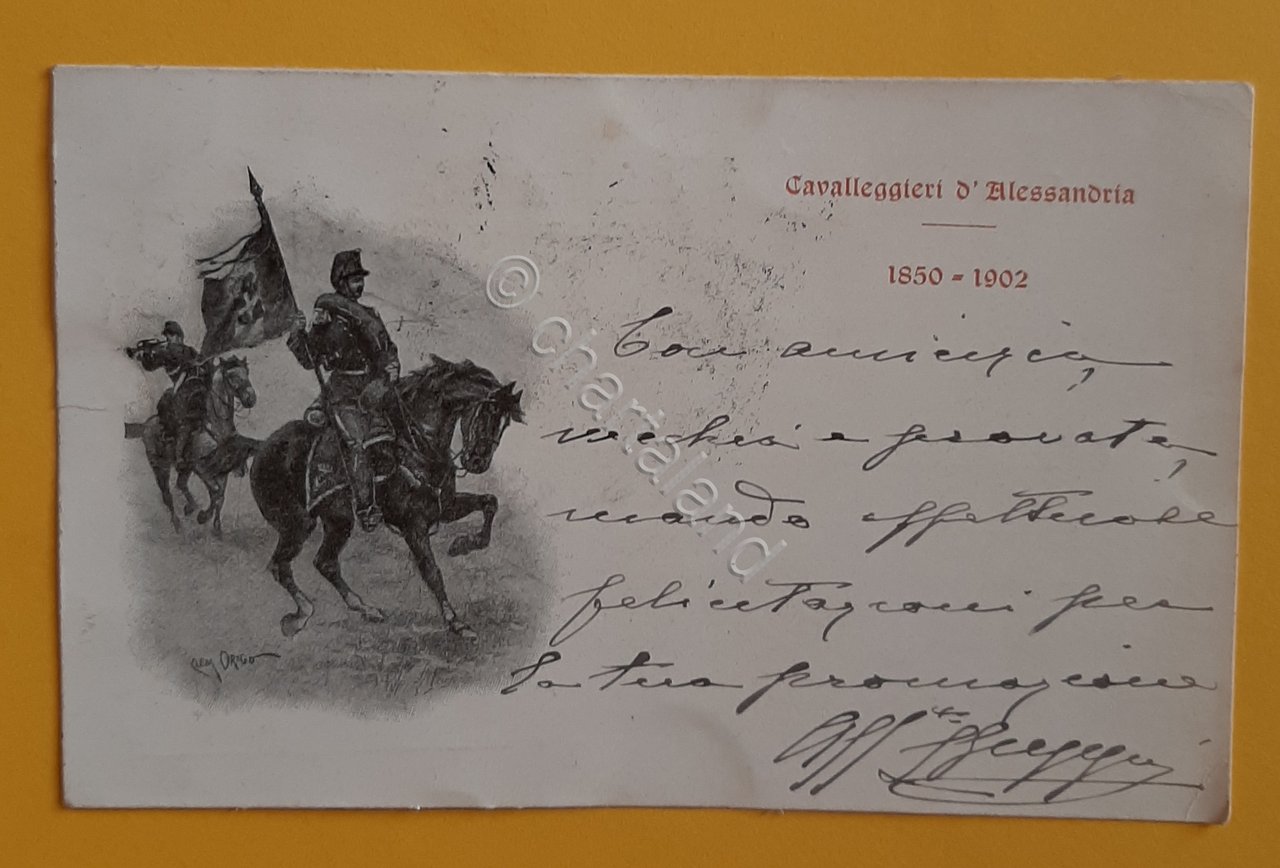 Cavalleggieri d'Alessandria
1850 = 1902
Con amicizia,
vechia e provata,
mando affettuose
felicitazioni per
la tua promozione
Aff.to
Clem Origo
© chartaland